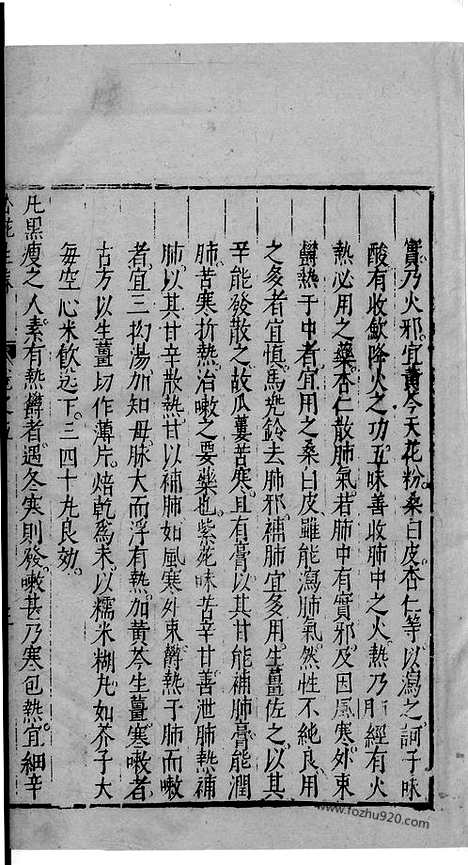 實乃火邪宜黃芩天花粉桑白皮杏仁等以瀉之訶子味
酸有收歛降火之功五味善收肺中之火熱乃肺經有火
熱必用之藥杏仁散肺氣若肺中有實邪及因風寒外束
欝熱于中者宜用之桑白皮雖能瀉肺氣然性不純良用
之多者宜慎馬兠鈴去肺邪補肺宜多用生薑佐之以其
辛能發散之故瓜蔞苦寒且有膏以其甘能補肺膏能潤
肺苦寒折熱治嗽之要藥也紫菀味苦辛甘善泄肺熱補
肺以其甘辛散熱甘以補肺如風寒外束欝熱于肺而嗽
者宜三拗湯加知母脉大而浮有熱加黃芩生薑寒嗽者
古方以生薑切作薄片焙乾爲末以糯米糊凣如芥子大
每空心米飲送下三四十丸良効
凡黑瘦之人素有熱欝者遇冬寒則發嗽甚乃寒包熱宜細辛
www.fozhu920.com